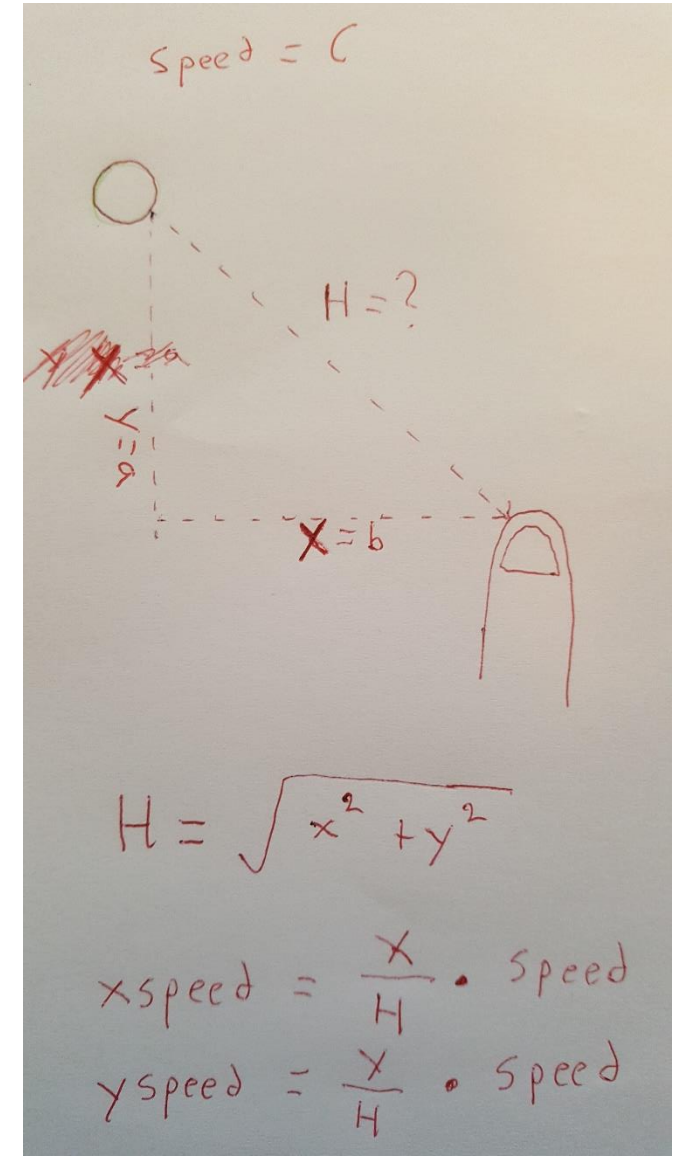 Speed = C
H = ?
y = a
X = b
H = √(x² + y²)
xspeed = X/H • Speed
yspeed = y/H • Speed